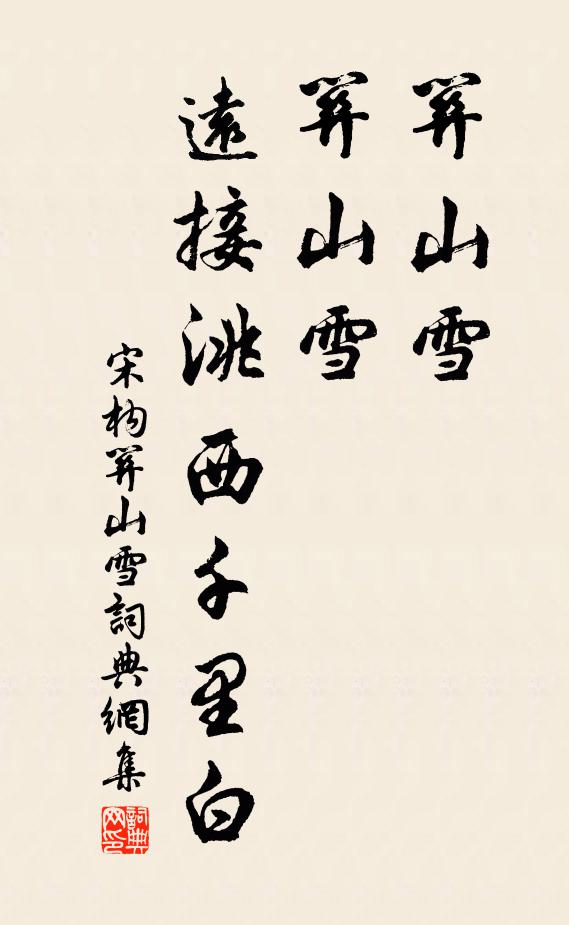 關山雪
關山雪
遠接洮西千里白
宋构關山雪詞典網集
詞典網印